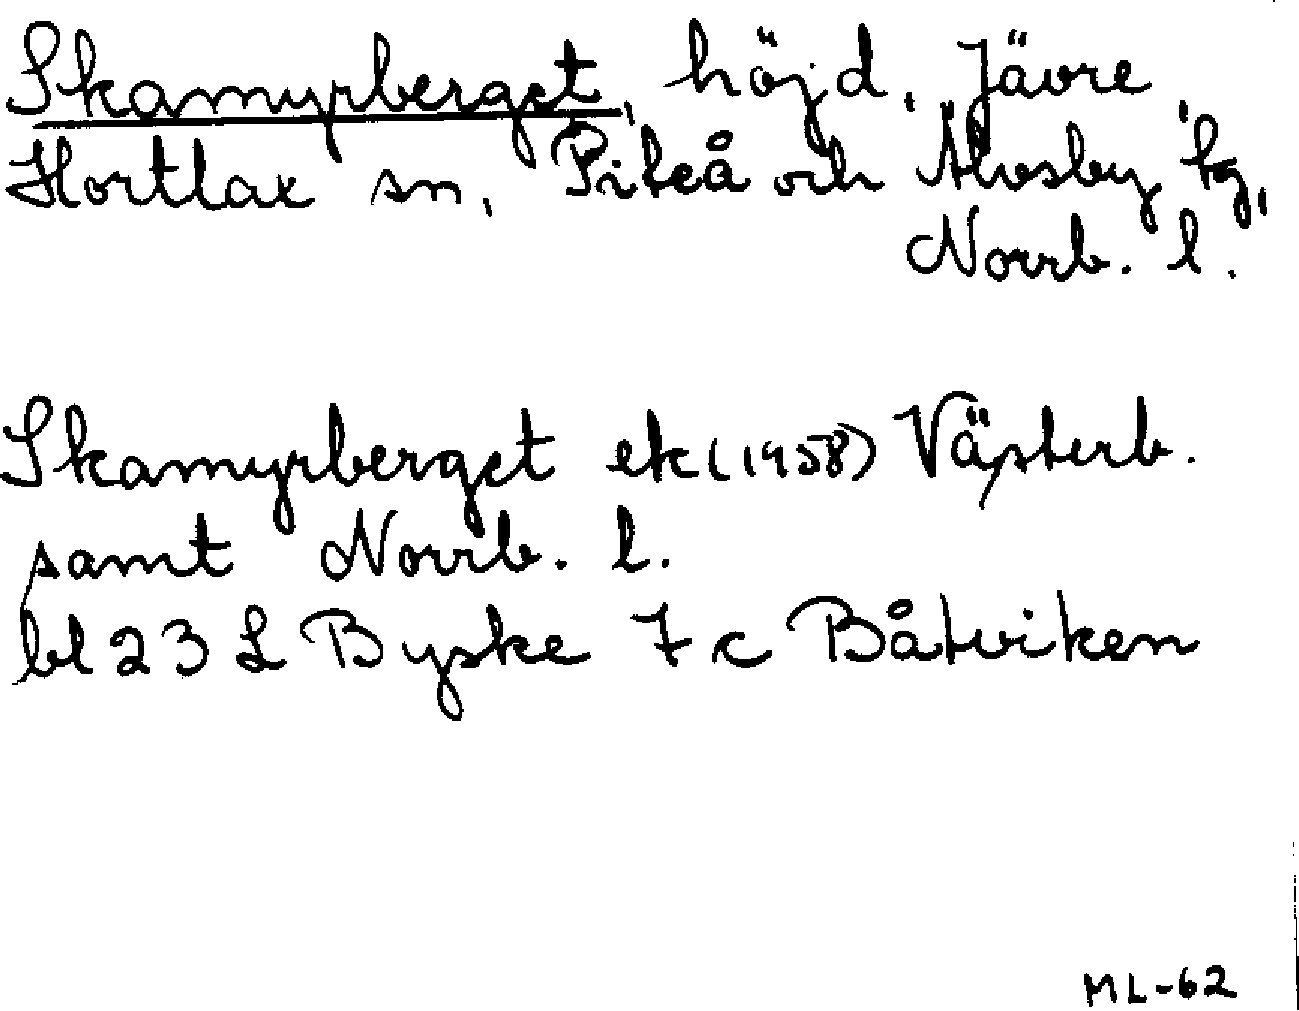 Skamyrberget, höjd, Jävre,
Hortlax sn, Piteå och Älvsby tg,
Norrb. l.
Skamyrberget ek (1958) Västerb.
samt Norrb. l.
bl 23 L Byske 7 c Båtviken
ML-62